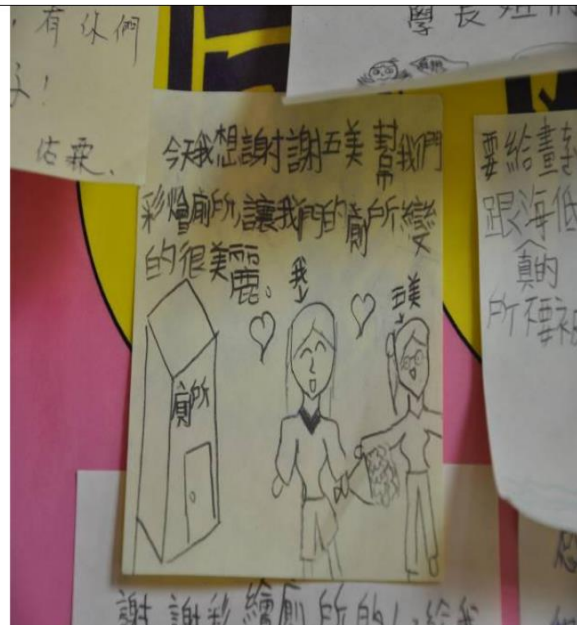 有你們
子!
學長姐們
今天我想謝謝五美幫我們
彩燴廁所,讓我們的廁所變
的很美麗。
我
五美
廁所
要給畫
跟海低
真的
所不要被
謝謝彩繪廁所的